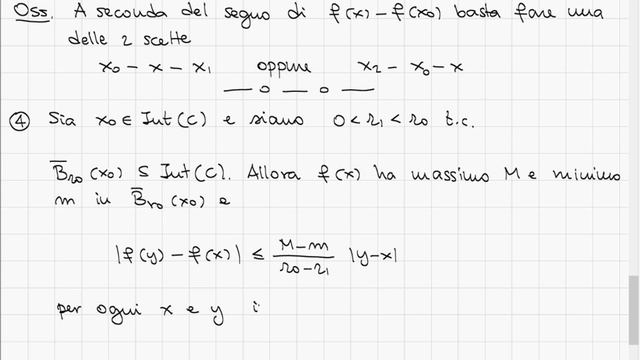 Oss. A seconda del segno di f(x) - f(x0) basta fare una
delle 2 scelte
x0 - x - x1 oppure x2 - x0 - x
④ Sia x0 ∈ Int(C) e siano 0 < r1 < r0 t.c.
B̅r0(x0) ⊆ Int(C). Allora f(x) ha massimo M e minimo
m in B̅r0(x0) e
|f(y) - f(x)| ≤ (M-m)/(r0-r1) |y-x|
per ogni x e y i